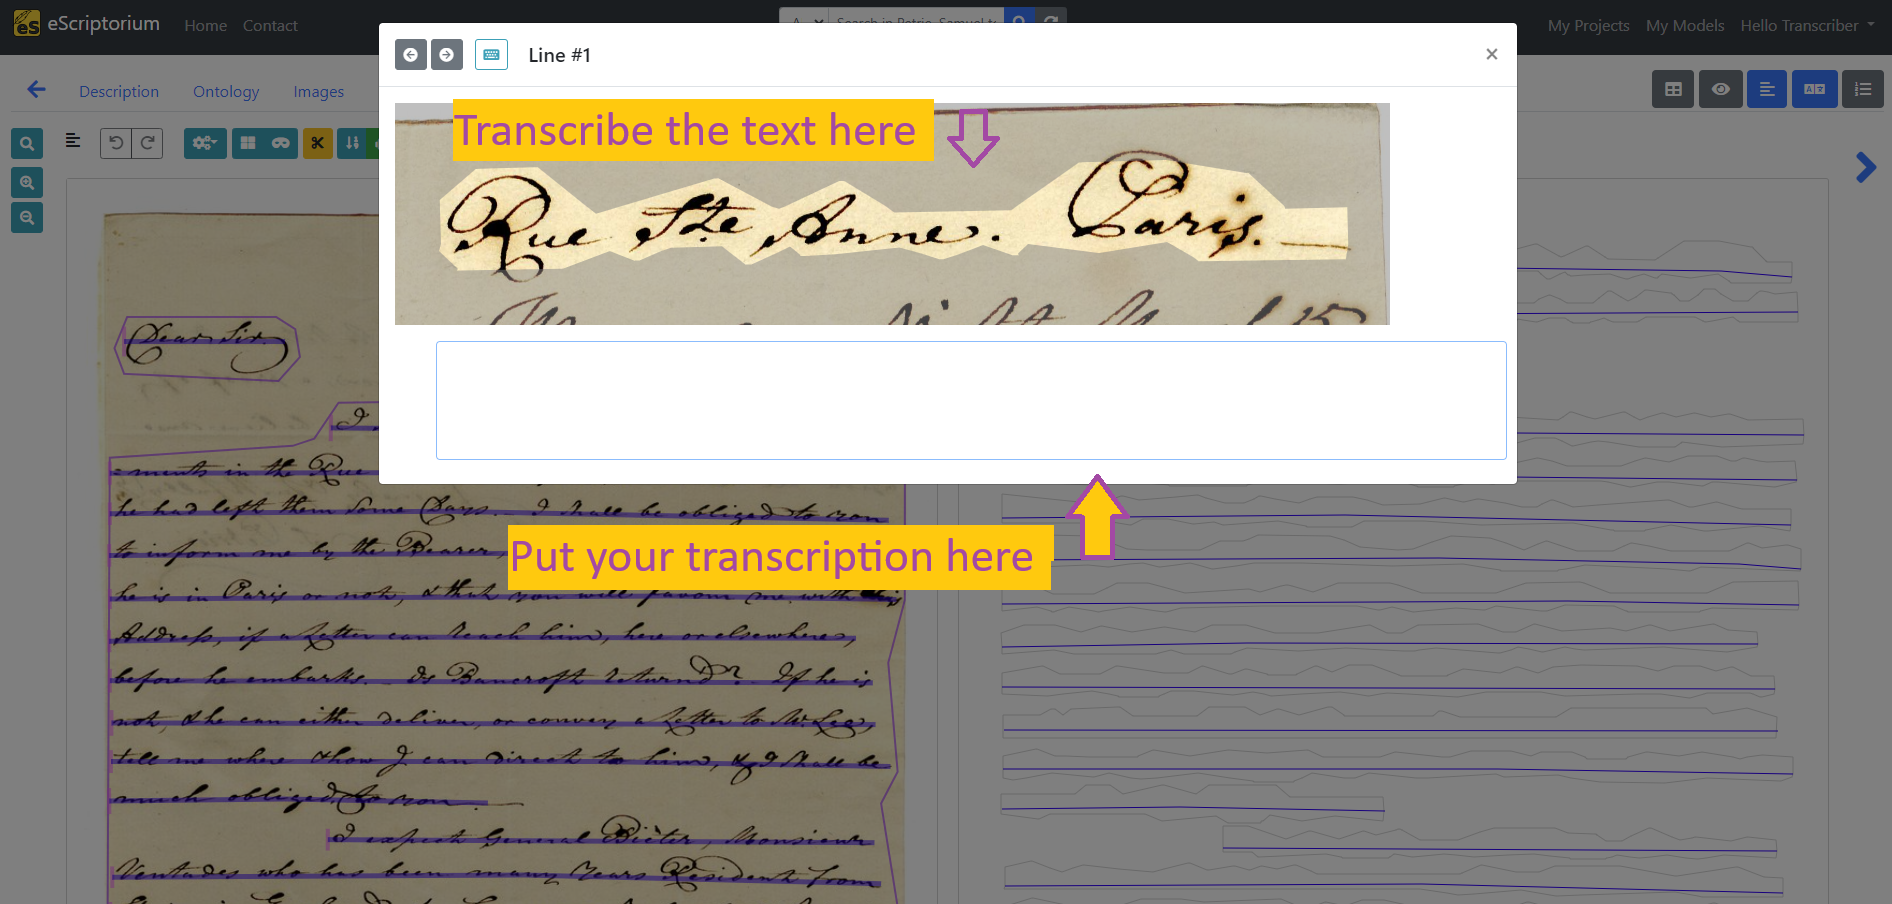 eScriptorium Home Contact
Search in Petrie, Samuel t
My Projects My Models Hello Transcriber
Line #1
×
Description Ontology Images
Transcribe the text here
Rue Ste Anne. Paris.
Put your transcription here
Dear Sir.
I
=ments in the Rue
he had left them Some Days. I shall be obliged to you
to inform me by the Bearer,
he is in Paris or not, & that you will favour me with his
Address, if a Letter can reach him, here or elsewhere,
before he embarks. Is Bancroft returnd? If he is
not, & he can either deliver, or convey a Letter to Mr. Lee,
tell me where & how I can Direct to him, & I shall be
much obliged to you.
I expect General Monsieur
Ventades who has been many Years Resident from